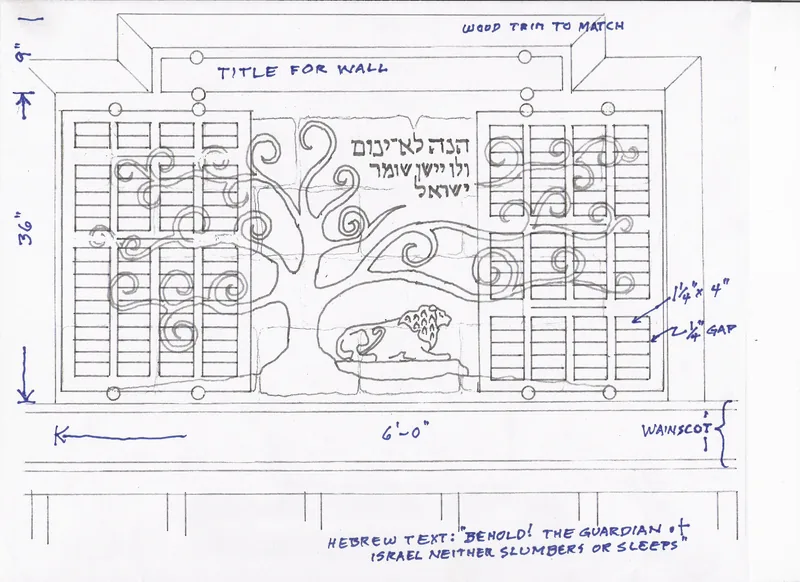 WOOD TRIM TO MATCH
9"
TITLE FOR WALL
הנה לא־ינום
ולו יישן שומר
ישראל
36"
1 1/4" x 4"
1/4" GAP
6'-0"
WAINSCOT
HEBREW TEXT: "BEHOLD! THE GUARDIAN of
ISRAEL NEITHER SLUMBERS OR SLEEPS"